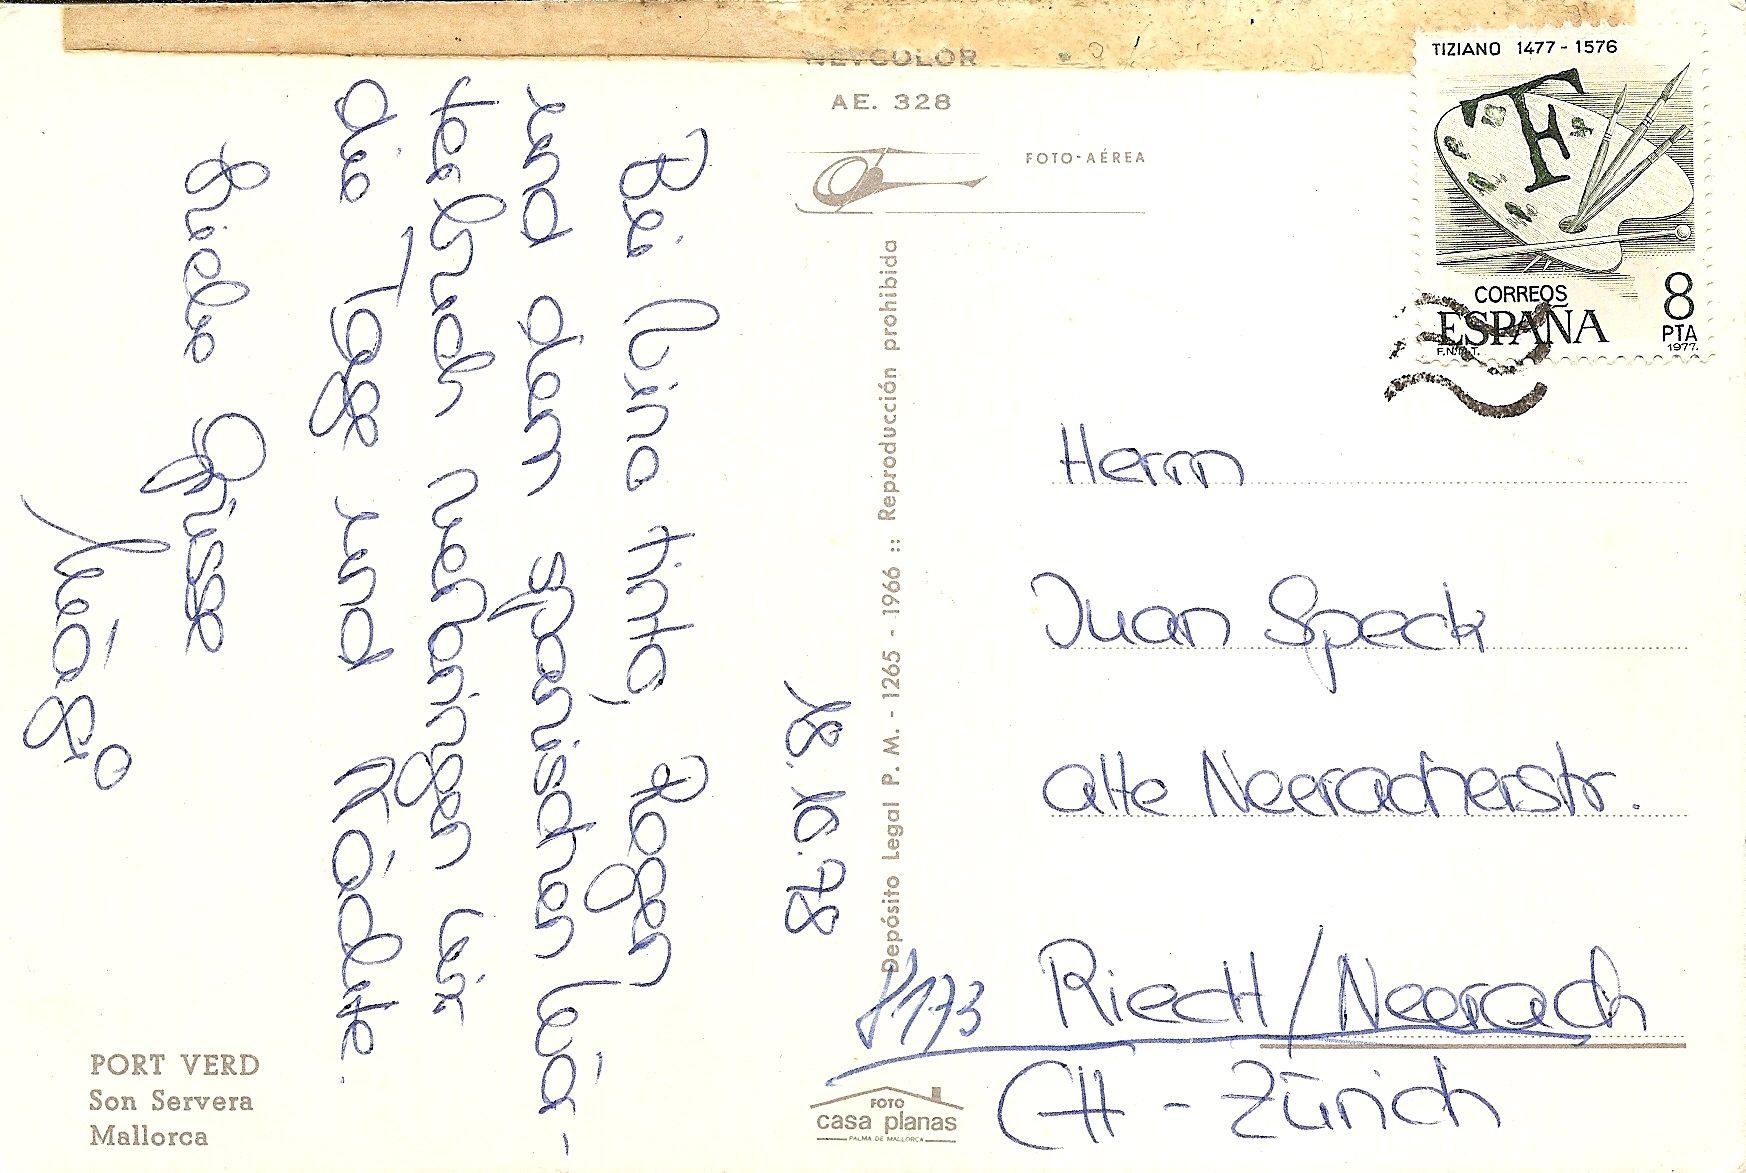 NEVCOLOR
AE. 328
FOTO-AÉREA
TIZIANO 1477-1576
TF
CORREOS
ESPAÑA
8
PTA
F.N.M.T.
1977.
18.10.78
Bei Vino tinto, Regen
und dem spanischen Wör-
terbuch verbringen wir
die Tage und Nächte.
Liebe Grüsse
Depósito Legal P. M. - 1265 - 1966 :: Reproducción prohibida
Herrn
Juan Speck
alte Neeracherstr.
8173 Riedt/Neerach
CH - Zürich
PORT VERD
Son Servera
Mallorca
FOTO
casa planas
PALMA DE MALLORCA